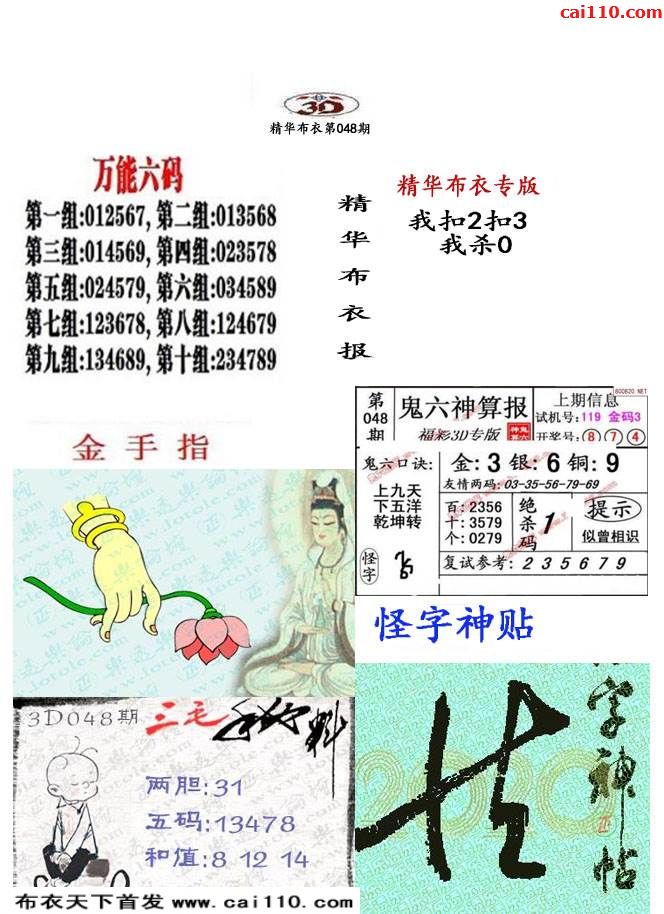 cai110.com
3D
精华布衣第048期
万能六码
第一组:012567, 第二组:013568
第三组:014569, 第四组:023578
第五组:024579, 第六组:034589
第七组:123678, 第八组:124679
第九组:134689, 第十组:234789
精华布衣报
精华布衣专版
我扣2扣3
我杀0
金手指
800820.NET
第048期
鬼六神算报
福彩3D专版
上期信息
试机号:119 金码3
开奖号:874
鬼六口诀:
上九天
下五洋
乾坤转
怪字
金:3 银:6 铜:9
友情两码:03-35-56-79-69
百:2356
十:3579
个:0279
绝杀码
1
提示
似曾相识
复试参考:235679
怪字神贴
字神帖
2020
3D048期 三毛
料
两胆:31
五码:13478
和值:8 12 14
布衣天下首发 www.cai110.com